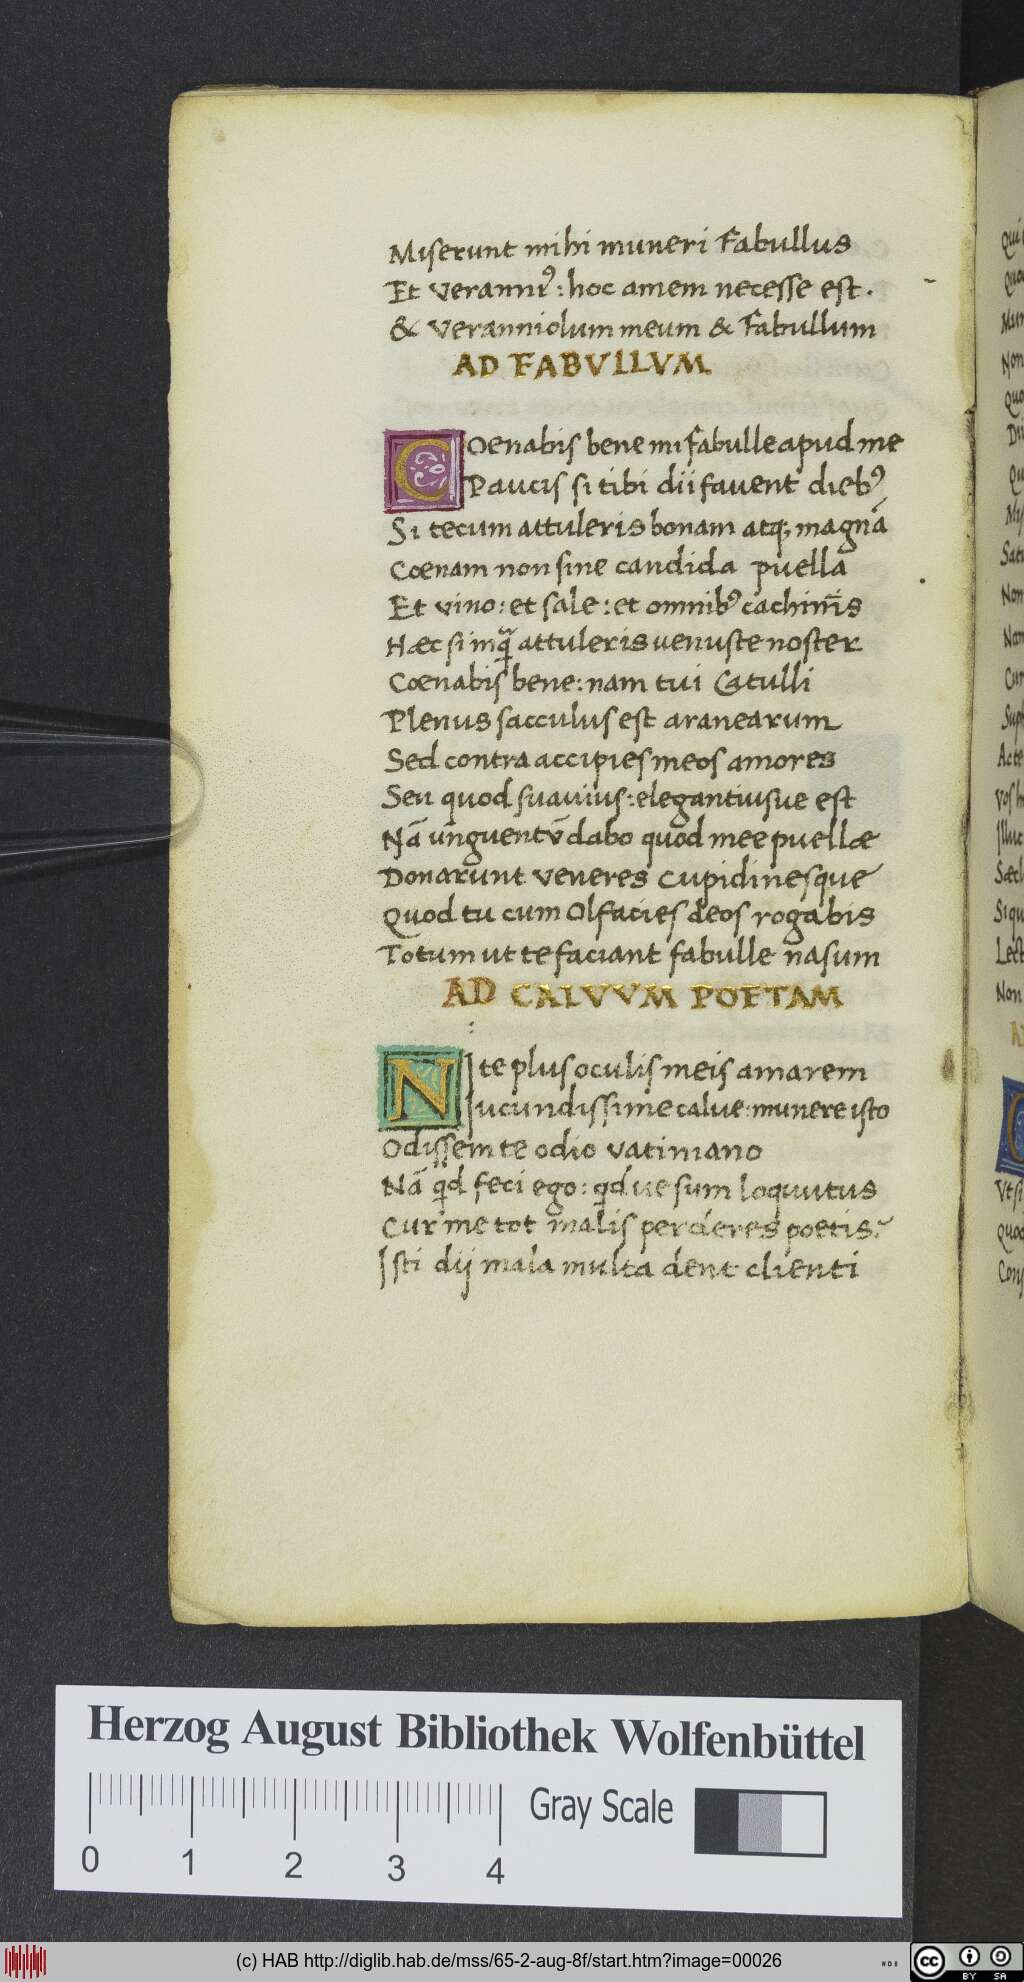 Miserunt mihi muneri Fabullus
Et veranniꝰ: hoc amem necesse est.
& veranniolum meum & Fabullum
AD FABVLLVM
COenabis bene mi fabulle apud me
Paucis si tibi dii favent diebꝰ
Si tecum attuleris bonam atq; magnā
Coenam non sine candida puella
Et vino: et sale: et omnibꝰ cachinīs
Hæc si inqᷓ attuleris venuste noster
Coenabis bene: nam tui Catulli
Plenus sacculus est aranearum
Sed contra accipies meos amores
Seu quod suavius: elegantiusve est
Nā unguentū dabo quod mee puellæ
Donarunt veneres cupidinesque
Quod tu cum Olfacies deos rogabis
Totum ut te faciant fabulle nasum
AD CALVVM POETAM
NI te plus oculis meis amarem
Iucundissime calve: munere isto
Odissem te odio vatiniano
Nā qd feci ego: qd ve sum loquutus
Cur me tot malis perderes poetis?
Isti dij mala multa dent clienti
Herzog August Bibliothek Wolfenbüttel
0 1 2 3 4
Gray Scale
(c) HAB http://diglib.hab.de/mss/65-2-aug-8f/start.htm?image=00026
cc BY SA